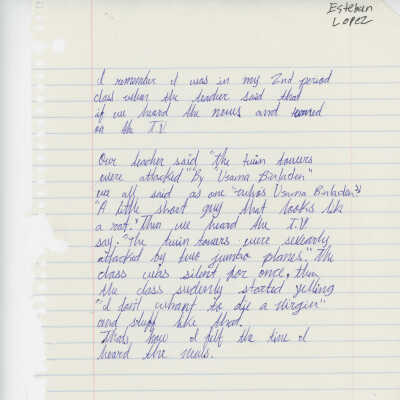 Esteban
Lopez
I remember I was in my 2nd period
class when the teacher said that
if we heard the news and turned
on the T.V
Our teacher said "the twin towers
were attacked" "By Usama Binladen"
we all said as one "whos Usama Binladen?"
"A little short guy that looks like
a rat." Then we heard the T.V
say. "The twin towers were severly
attacked by two jumbo planes." The
class was silent for once, then
the class sudenly started yelling
"I don't whant to die a virgin"
and stuff like that.
Thats how I felt the time I
heard the news.